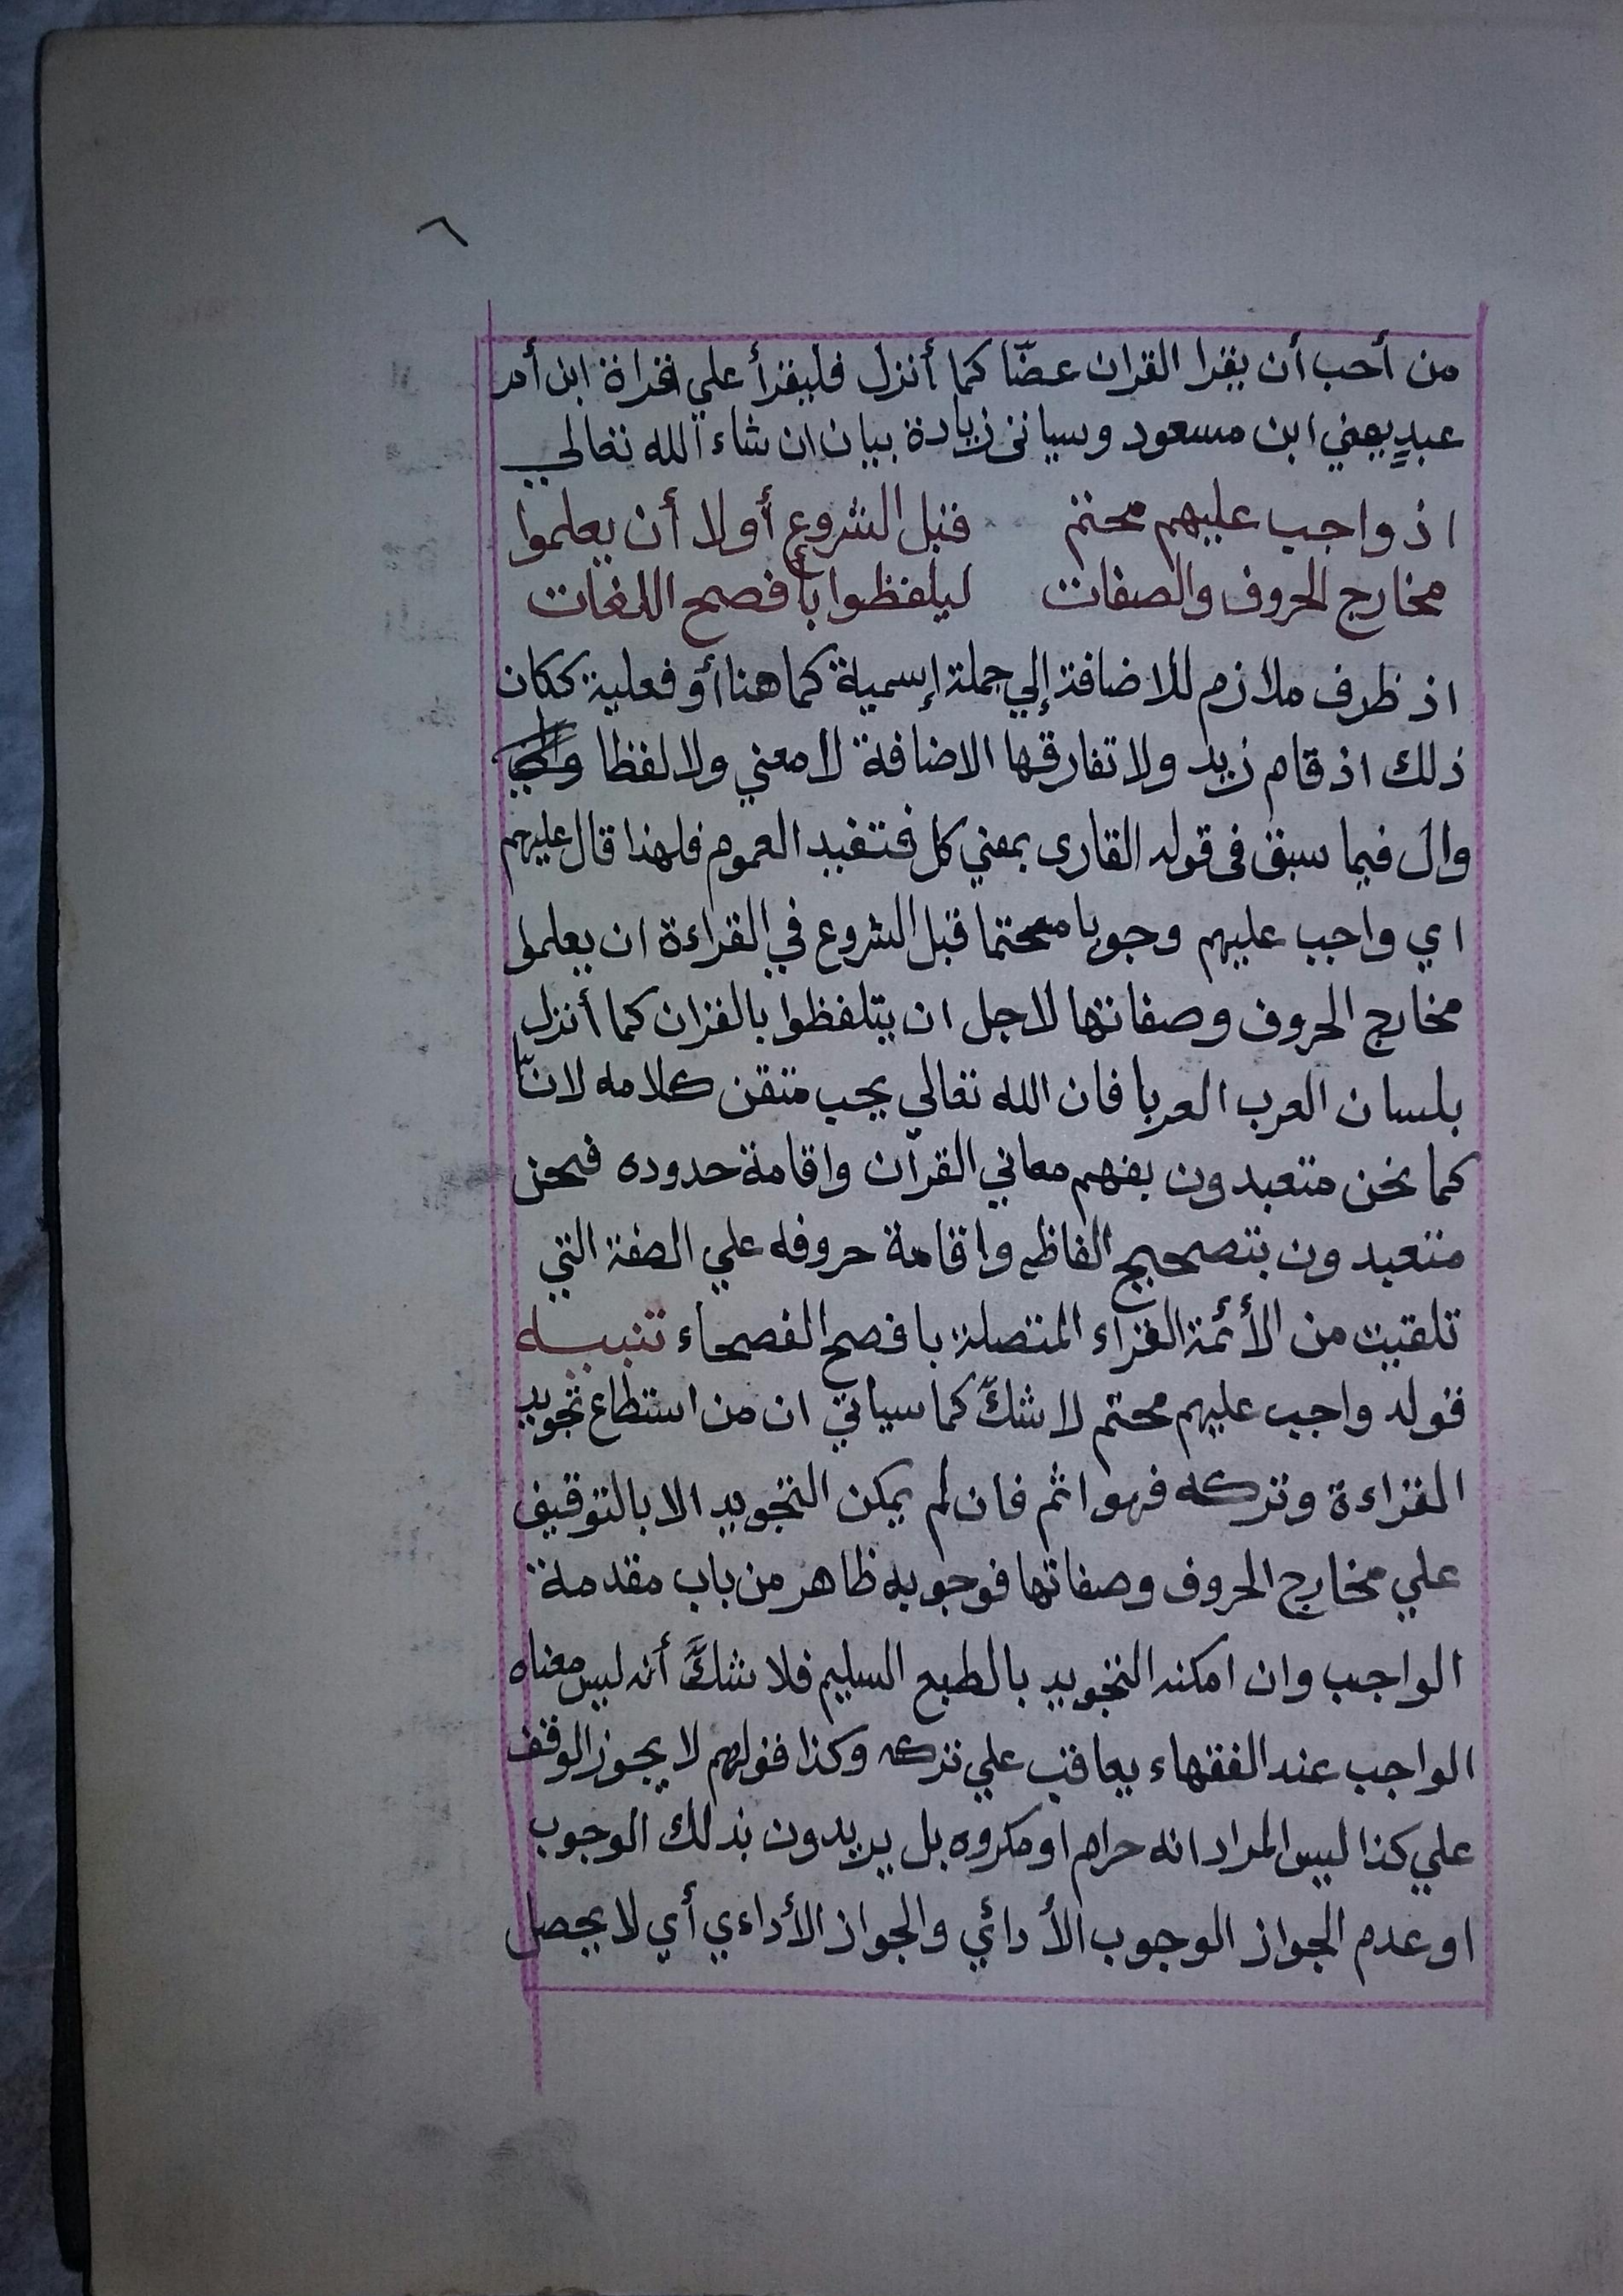 ٦
من أحب أن يقرا القران غضّا كما أنزل فليقرأ علي قراة ابن أم
عبدٍ يعني ابن مسعود وسياتى زيادة بيان ان شاء الله تعالي
اذ واجب عليهم محتم قبل الشروع أولا أن يعلموا
مخارج الحروف والصفات ليلفظوا بأفصح اللغات
اذ ظرف ملازم للاضافة إلي جملة إسمية كما هنا أو فعلية ككان
ذلك اذ قام زيد ولا تفارقها الاضافة لا معني ولا لفظا
وال فيما سبق فى قوله القارى بمعني كل فتفيد العموم فلهذا قال عليهم
اي واجب عليهم وجوبا محتما قبل الشروع في القراءة ان يعلموا
مخارج الحروف وصفاتها لاجل ان يتلفظوا بالقران كما أنزل
بلسان العرب العربا فان الله تعالي يحب متقن كلامه لانّا
كما نحن متعبدون بفهم معاني القرآن واقامة حدوده فنحن
متعبدون بتصحيح الفاظه واقامة حروفه علي الصفة التي
تلقيت من الأئمة القراء المتصلة بافصح الفصحاء تنبيه
قوله واجب عليهم محتم لا شكّ كما سياتي ان من استطاع تجويد
القراءة وتركه فهو اثم فان لم يمكن التجويد الا بالتوقيف
علي مخارج الحروف وصفاتها فوجوبه ظاهر من باب مقدمة
الواجب وان امكنه التجويد بالطبع السليم فلا شكَّ أنه ليس معناه
الواجب عند الفقهاء يعاقب علي تركه وكذا قولهم لا يجوز الوقف
علي كذا ليس المراد انه حرام او مكروه بل يريدون بذلك الوجوب
او عدم الجواز الوجوب الأدائي والجواز الأداءي أي لا يحصل